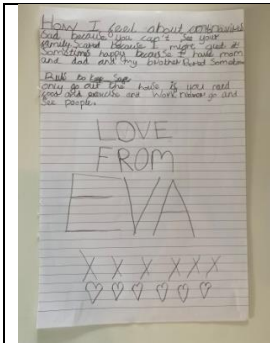 How I feel about coronavirus
Sad because you can't see your
family Scared because I might get it
Sometimes happy because I have mam
and dad and my brother Bored Sometimes
Rules to keep safe
only go out the house if you need
food and exercise and work never go and
see people.
LOVE
FROM
EVA
X X X X X X